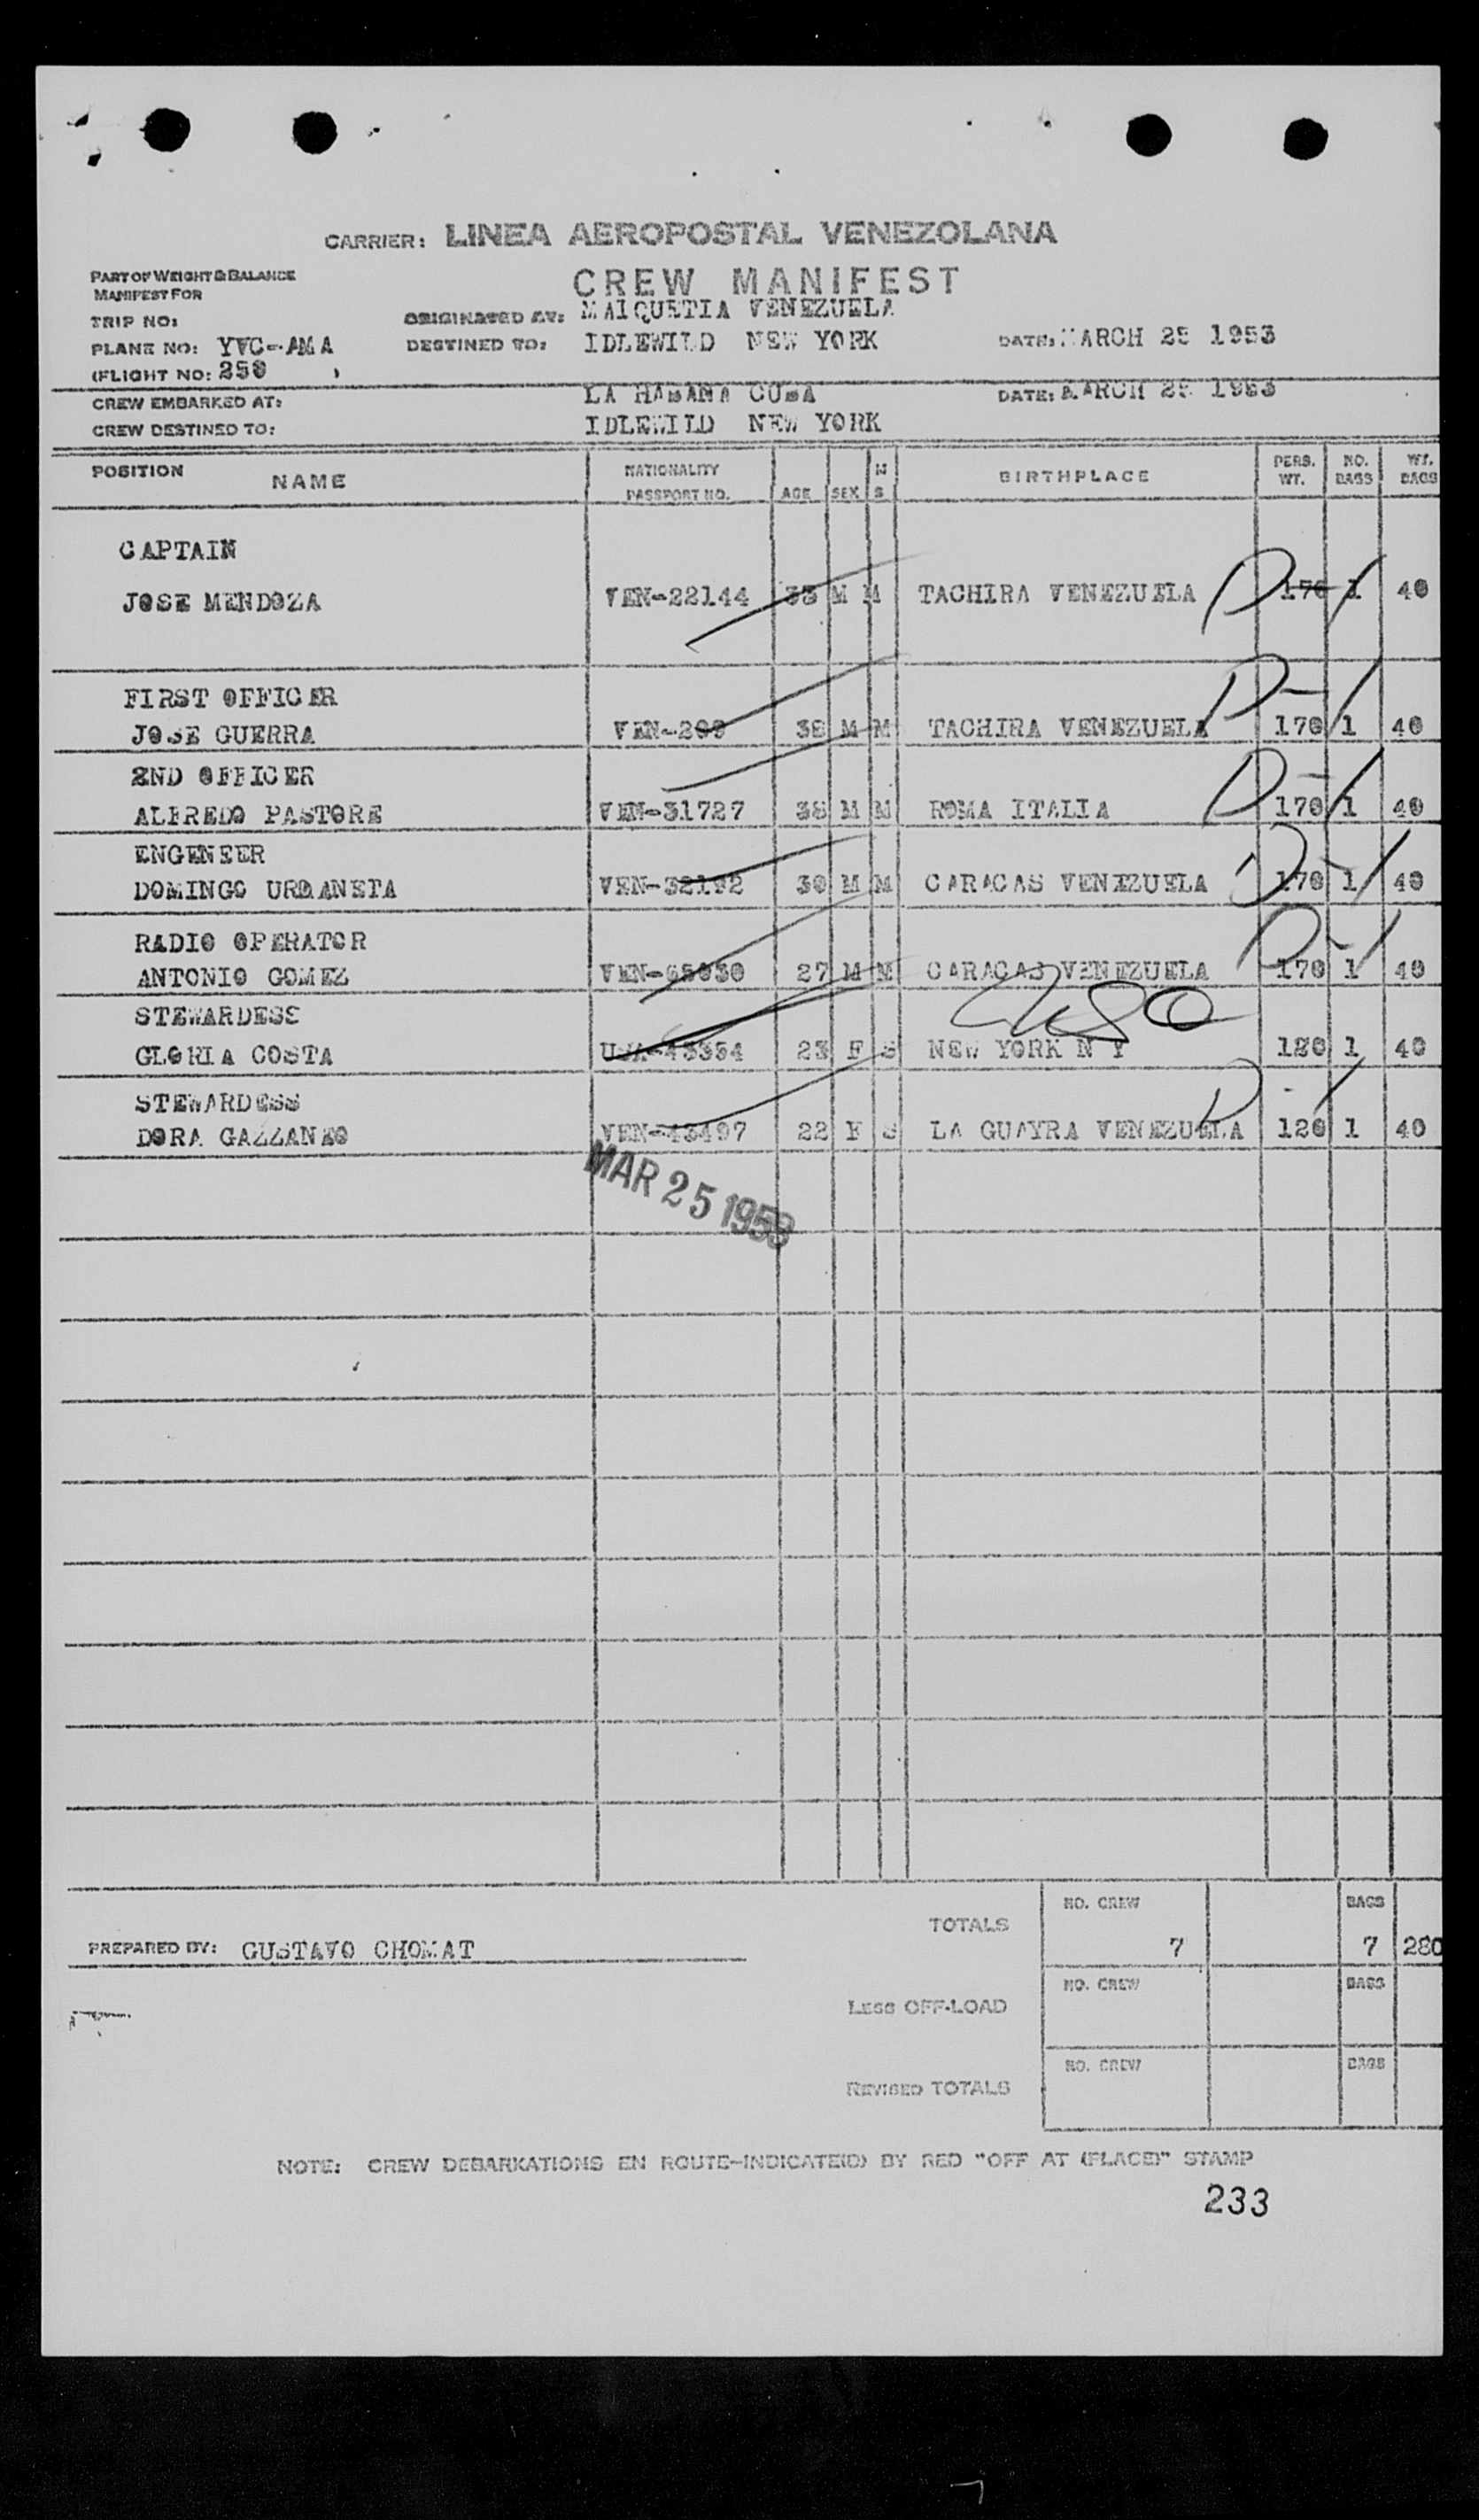 CARRIER: LINEA AEROPOSTAL VENEZOLANA
PART OF WEIGHT & BALANCE
MANIFEST FOR
CREW MANIFEST
TRIP NO:
ORIGINATED AT: MAIQUETIA VENEZUELA
PLANE NO: YVC-AMA
DESTINED TO: IDLEWILD NEW YORK
DATE: MARCH 25 1953
(FLIGHT NO: 250 )
CREW EMBARKED AT: LA HABANA CUBA
DATE: MARCH 25 1953
CREW DESTINED TO: IDLEWILD NEW YORK
POSITION NAME NATIONALITY PASSPORT NO. AGE SEX M S BIRTHPLACE PERS. WT. NO. BAGS WT. BAGS
CAPTAIN
JOSE MENDOZA VEN-22144 33 M M TACHIRA VENEZUELA 170 1 40
FIRST OFFICER
JOSE GUERRA VEN-209 38 M M TACHIRA VENEZUELA 170 1 40
2ND OFFICER
ALFREDO PASTORE VEN-31727 38 M M ROMA ITALIA 170 1 40
ENGENEER
DOMINGO URDANETA VEN-32192 30 M M CARACAS VENEZUELA 170 1 40
RADIO OPERATOR
ANTONIO GOMEZ VEN-65030 27 M M CARACAS VENEZUELA 170 1 40
STEWARDESS
GLORIA COSTA USA-43354 23 F S NEW YORK N Y 120 1 40
STEWARDESS
DORA GAZZANEO VEN-43497 22 F S LA GUAYRA VENEZUELA 120 1 40
MAR 25 1953
TOTALS NO. CREW 7 BAGS 7 280
PREPARED BY: GUSTAVO CHOMAT
LESS OFF-LOAD NO. CREW BAGS
REVISED TOTALS NO. CREW BAGS
NOTE: CREW DEBARKATIONS EN ROUTE-INDICATE(D) BY RED "OFF AT (PLACE)" STAMP
233